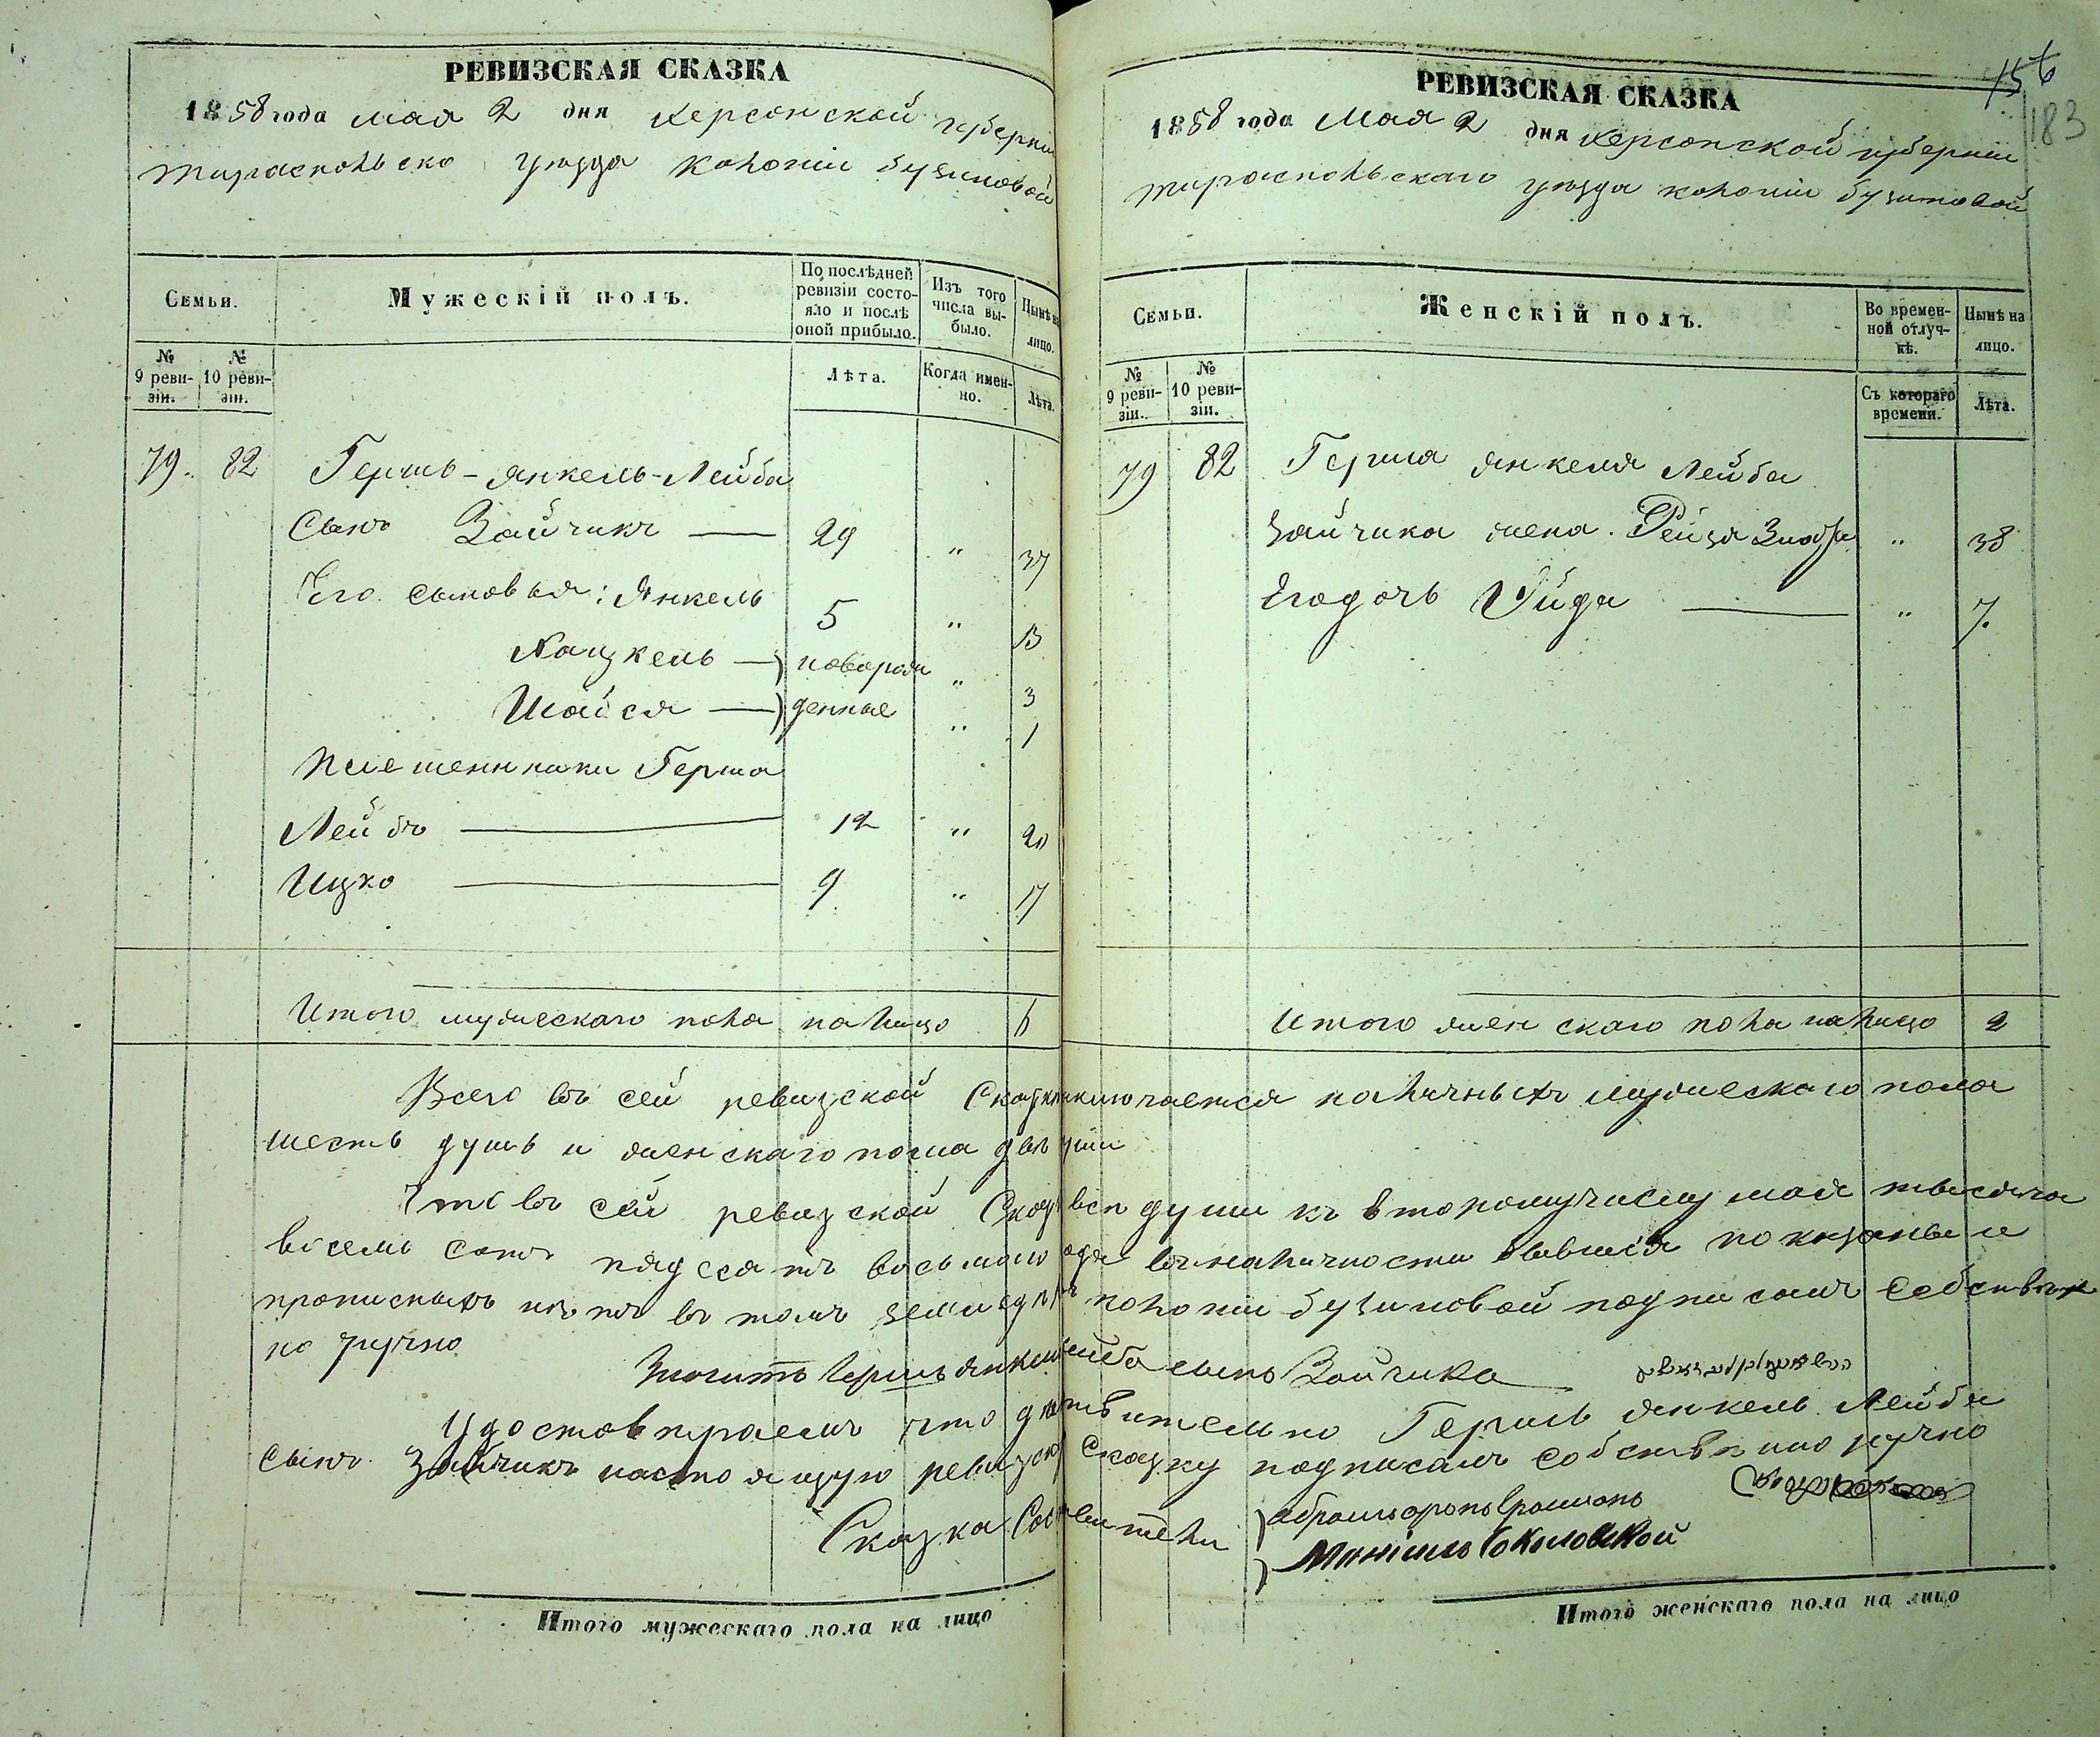 РЕВИЗСКАЯ СКАЗКА
1858 года мая 2 дня Херсонской губерніи
Тираспольско уезда Колоніи Бузиновой
Семьи.
Мужескій полъ.
По послѣдней ревизіи состояло и послѣ оной прибыло.
Изъ того числа выбыло.
Нынѣ на лицо.
№ 9 ревизіи.
№ 10 ревизіи.
Лѣта.
Когда именно.
Лѣта.
79. 82 Гершь-Янкель-Лейба
Сынъ Зайчикъ — 29 " 37
Его сыновья: Янкель 5 " 13
Хацкель — новорож " 3
Шайся — денные " 1
Племенники Герша
Лейбъ — 12 " 20
Ицко — 9 " 17
Итого мужескаго пола на лицо 6
РЕВИЗСКАЯ СКАЗКА
156
183
1858 года Мая 2 дня Херсонской губерніи
Тираспольскаго уезда колоніи Бузиновой
Семьи.
Женскій полъ.
Во временной отлучкѣ.
Нынѣ на лицо.
№ 9 ревизіи.
№ 10 ревизіи.
Съ котораго времени.
Лѣта.
79 82 Герша Янкеля Лейба
Зайчика жена. Рейзя Злота " 38
Его дочь Ойда — " 7.
Итого женскаго пола на лицо 2
Всего въ сей ревизской Сказке заключается наличныхъ мужескаго пола
шесть душъ и женскаго пола две души
Что въ сей ревизской Сказке все души къ второму числу мая тысяча
восемь сотъ пядесятъ восьмого года въ наличности бывшія показаны и
прописныхъ нетъ въ томъ колоніи Бузиновой подписалъ собствен
но ручно
Гершь Янкель Лейба сынъ Зайчика
Удостовераемъ что действительно Гершь Янкель Лейба
сынъ Зайчикъ настоящую ревизскую Сказку подписалъ собственно ручно
Сказка Состовители
Соколовской
Итого мужескаго пола на лицо
Итого женскаго пола на лицо